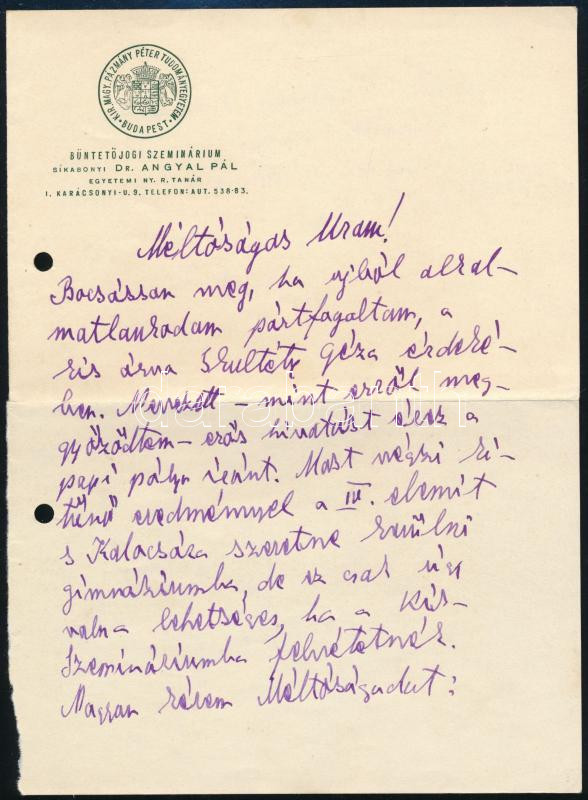 KIR. MAGY. PÁZMÁNY PÉTER TUDOMÁNYEGYETEM
BUDAPEST
BÜNTETŐJOGI SZEMINÁRIUM
SÍKABONYI DR. ANGYAL PÁL
EGYETEMI NY. R. TANÁR
I. KARÁCSONYI-U. 9. TELEFON: AUT. 538-83.
Méltóságos Uram!
Bocsásson meg, ha ujból alkal-
matlankodom pártfogoltam, a
kis árva Skultéty Géza érdeké-
ben. Nevezett – mint erről meg-
győződtem – erős hivatást érez a
papi pálya iránt. Most végzi ki-
tünő eredménnyel a IV. elemit
s Kalocsára szeretne kerülni
gimnáziumba, de ez csak úgy
volna lehetséges, ha a Kis-
Szemináriumba felvétetnék.
Nagyon kérem Méltóságodat:
darabanth